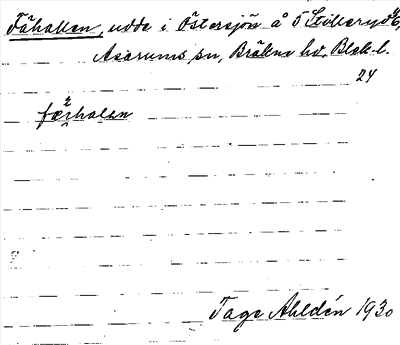 Fåhallen, udde i Östersjön å 5 Stilleryd
Asarums sn, Bräkne hd, Blek. l.
24
Tage Ahldén 1930